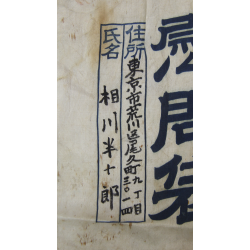 住所 東京市荒川區尾久町九丁目三〇一四
氏名 相川半十郎